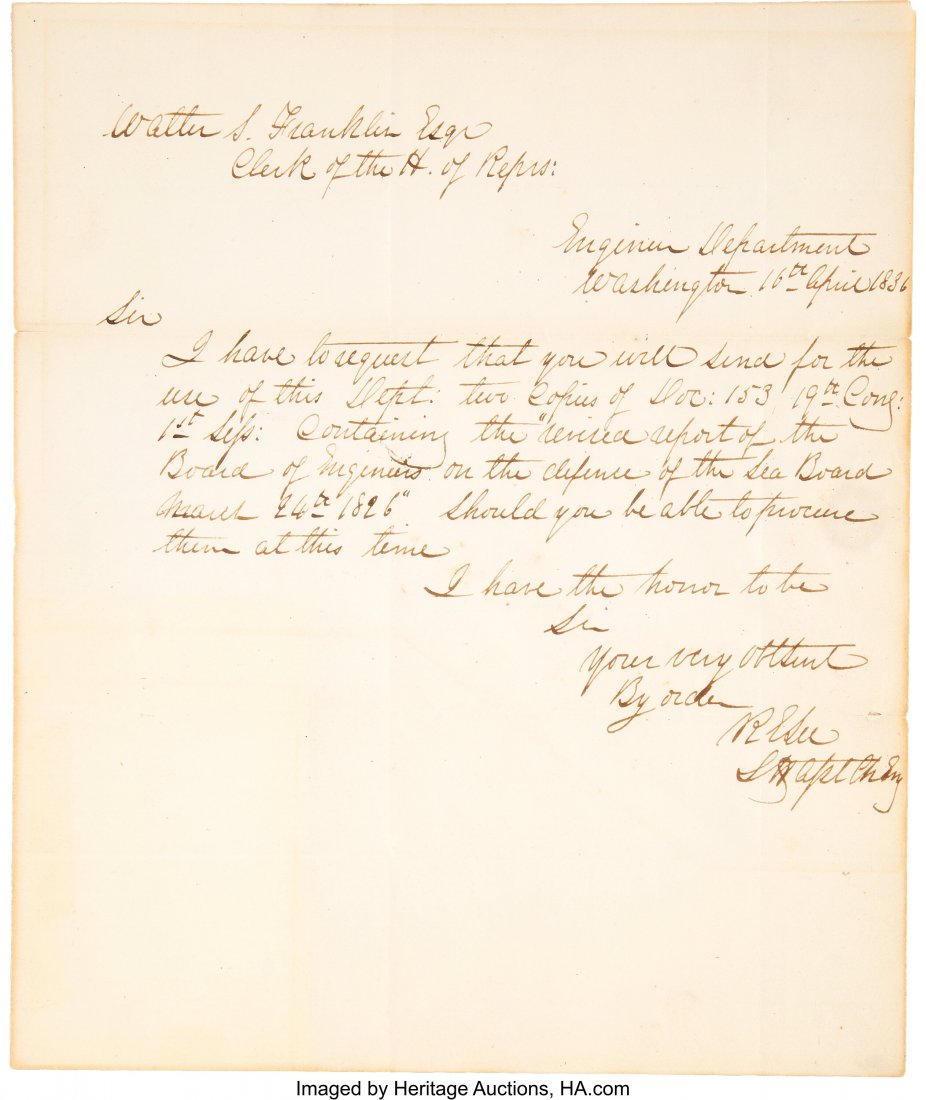 Walter S. Franklin Esqr
Clerk of the H. of Reprs:
Engineer Department
Washington 16th April 1836
Sir
I have to request that you will send for the
use of this Dept: two Copies of Doc: 153, 19th Cong:
1st Sess: Containing the "revised report of the
Board of Engineers on the defense of the Sea Board
March 24th 1826" should you be able to procure
them at this time
I have the honor to be
Sir
Your very Obt Sevt
By order
R E Lee
Lt & Asst Ch Eng
Imaged by Heritage Auctions, HA.com